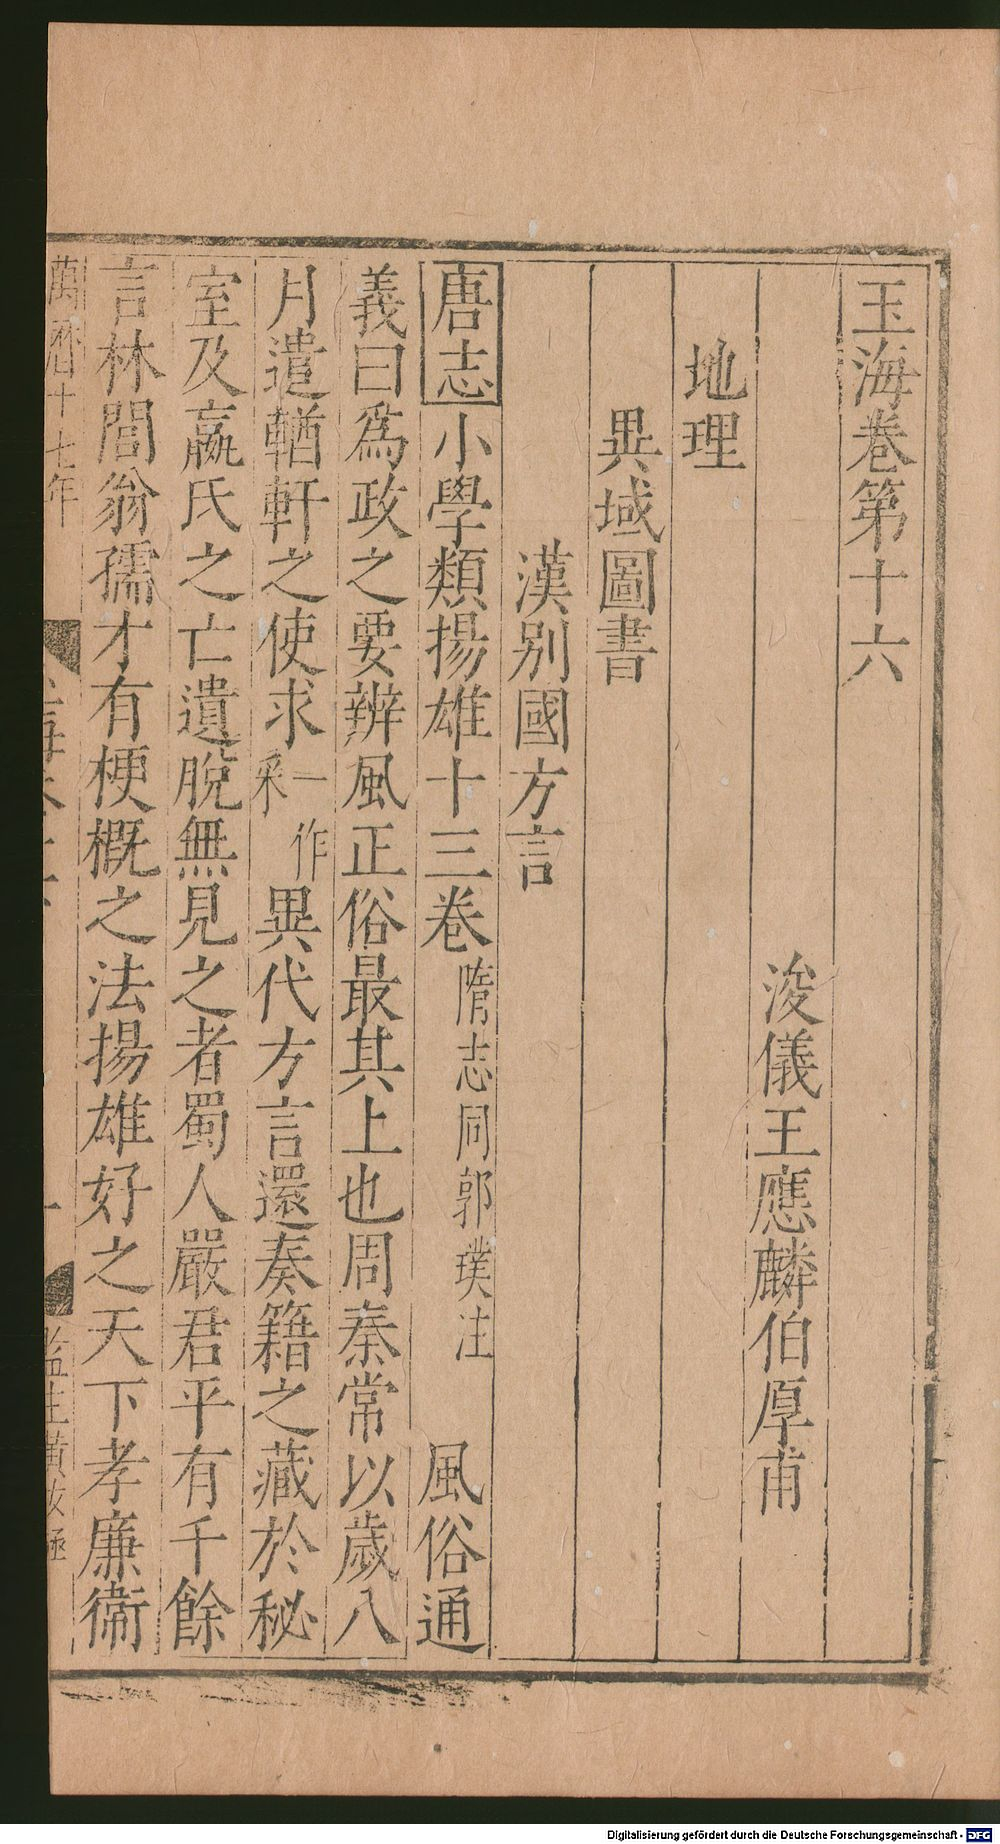 玉海卷第十六
浚儀王應麟伯厚甫
地理
異域圖書
漢別國方言
唐志小學類揚雄十三卷隋志同郭璞注 風俗通
義曰爲政之要辨風正俗最其上也周秦常以歲八
月遣輶軒之使求一作采異代方言還奏籍之藏於秘
室及嬴氏之亡遺脫無見之者蜀人嚴君平有千餘
言林閭翁孺才有梗概之法揚雄好之天下孝廉衞
萬曆十七年
一
監生黃
Digitalisierung gefördert durch die Deutsche Forschungsgemeinschaft - DFG